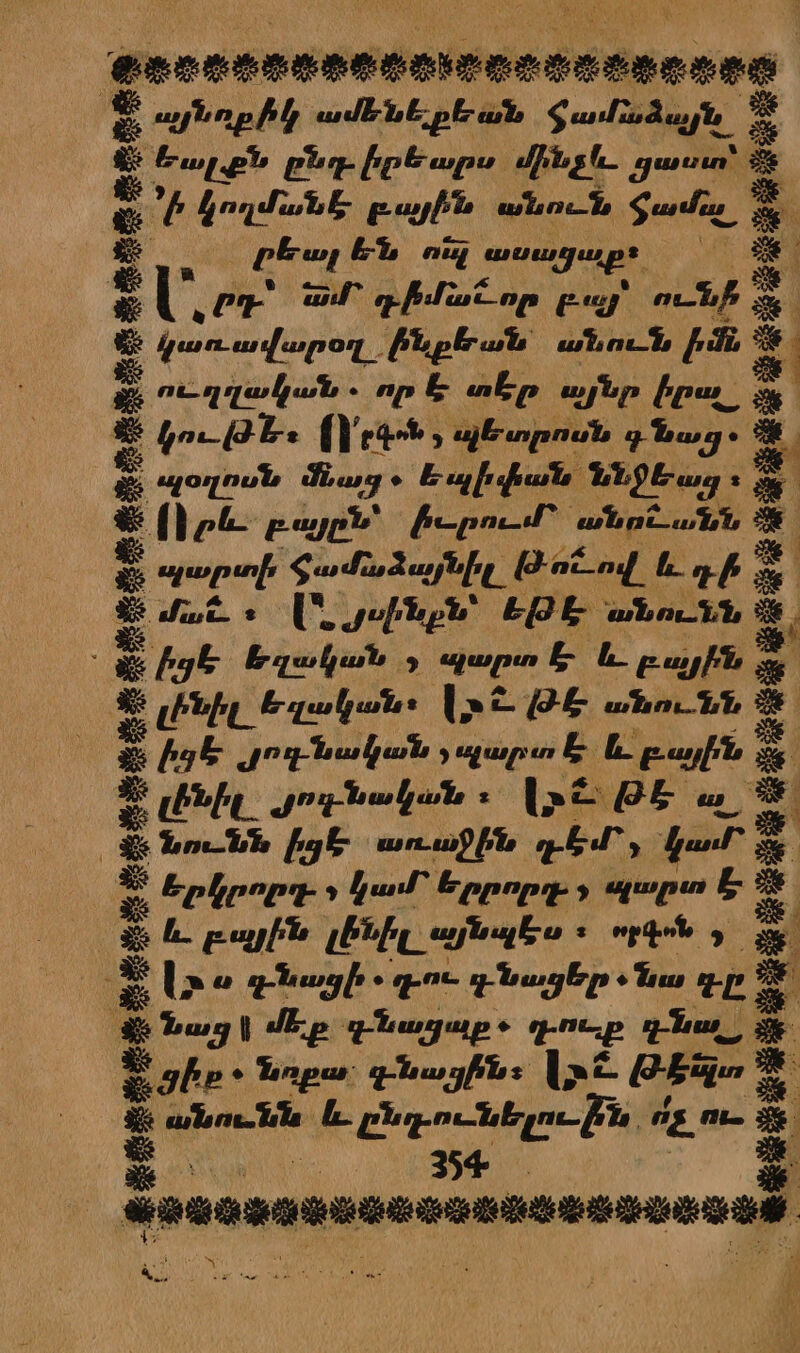 այնոքիկ ամենեքեան համաձայն_
եալքն ընդ իրեարս մինչև ցաստ՝
՚ի կողմանէ բային անուն համա_
րեալ են որպ ասացաք։
Արդ՝ ամ դիմաւոր բայ՝ ունի
կառավարօղ ինքեան անուն իմն
ուղղական․ որ է տէր այնր իրա_
կութե։ Որգոն, պետրոսն գնաց․
պօղոսն մնաց․ եպիփան ննջեաց։
Որև բայըն՝ իւրում անուանն
պարտի համաձայնիլ թուով և դի
մաւ։ Այսինքն՝ եթէ անունն
իցէ եզական, պարտ է և բային
լինիլ եզական։ Եւ թէ անունն
իցէ յոգնական, պարտ է և բային
լինիլ յոգնական։ Եւ թէ ա_
նունն իցէ առաջին դէմ, կամ
երկրորդ, կամ երրորդ, պարտ է
և բային լինիլ այնպէս։ որգոն,
Ես գնացի․ դու գնացեր․ նա գը
նաց॥ մեք գնացաք․ դուք գնա_
ցիք․ նոքա գնացին։ Եւ թէպտ
անունն և ընդունելուին ոչ ու
354